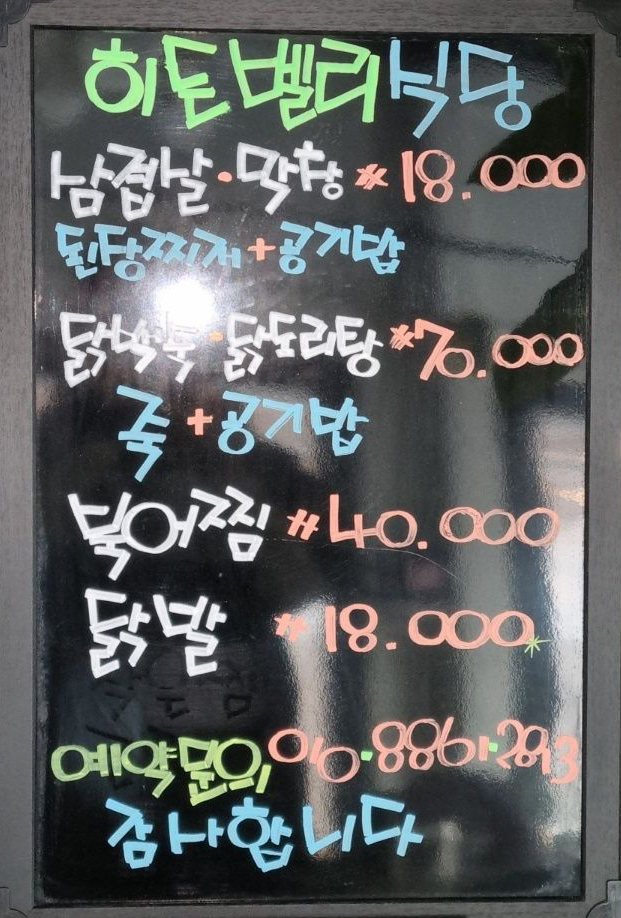 히든벨리식당
삼겹살·막창 # 18.000
된장찌개+공기밥
닭백숙·닭도리탕 #70.000
죽+공기밥
북어찜 # 40.000
닭발 # 18.000
예약문의 010·8861·2893
감사합니다